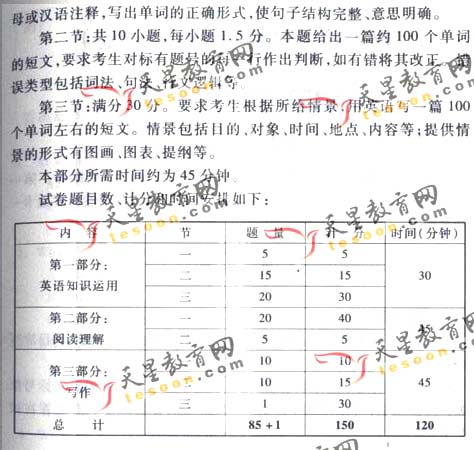 母或汉语注释,写出单词的正确形式,使句子结构完整、意思明确。
第二节:共10小题,每小题1.5分。本题给出一篇约100个单词
的短文,要求考生对标有题号的 行作出判断,如有错将其改正。
误类型包括词法、句
第三节:满分30分。要求考生根据所给情景,用英语写一篇100
个单词左右的短文。情景包括目的、对象、时间、地点、内容等;提供情
景的形式有图画、图表、提纲等。
本部分所需时间约为45分钟。
试卷题目数、计分和时间安排如下:
内 容 节 题 量 计 分 时间(分钟)
第一部分:
英语知识运用
一 5 5
二 15 15 30
三 20 30
第二部分:
阅读理解
一 20 40
二 5 5 45
第三部分:
写作
一 10 10
二 10 15 45
三 1 30
总 计 85+1 150 120
天星教育网
tesoon.com
天星教育网
tesoon.com
天星教育网
tesoon.com
天星教育网
tesoon.com
天星教育网
tesoon.com
天星教育网
tesoon.com